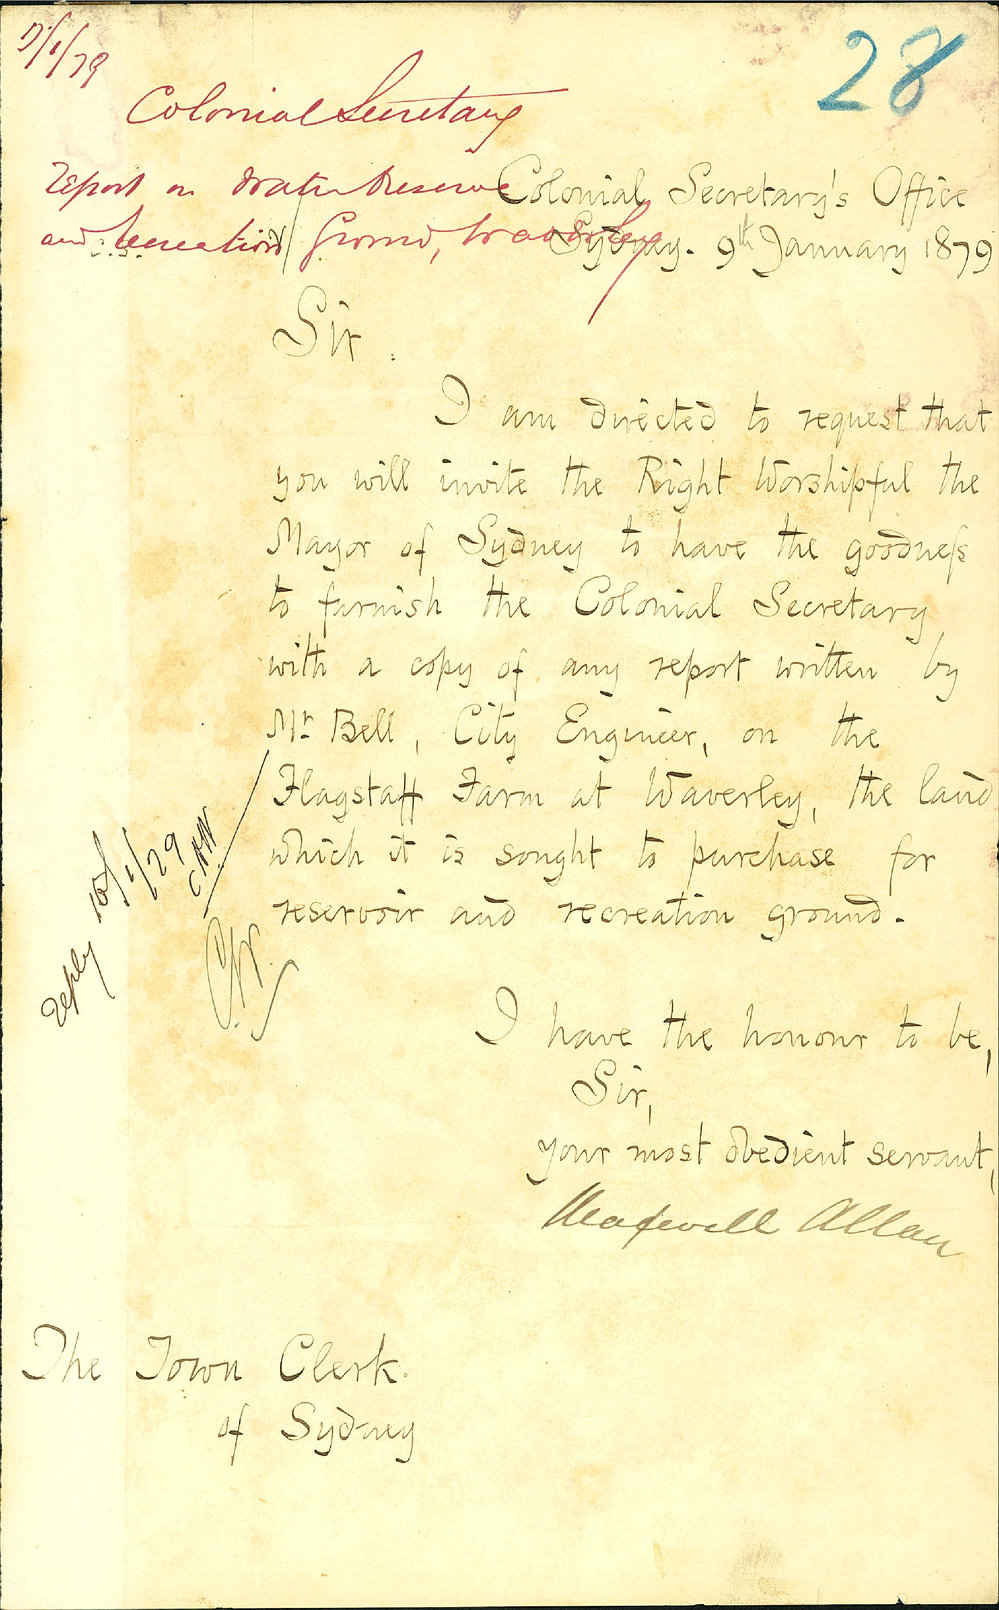 28
Colonial Secretary
Report on Water Reserve
and Recreation Ground, Waverley
Colonial Secretary's Office
Sydney. 9th January 1879
Sir.
I am directed to request that
you will invite the Right Worshipful the
Mayor of Sydney to have the goodneſs
to furnish the Colonial Secretary
with a copy of any report written by
Mr Bell, City Engineer, on the
Flagstaff Farm at Waverley, the land
which it is sought to purchase for
reservoir and recreation ground.
reply 10/1/79
I have the honour to be,
Sir,
your most obedient servant,
Maxwell Allan
The Town Clerk.
of Sydney